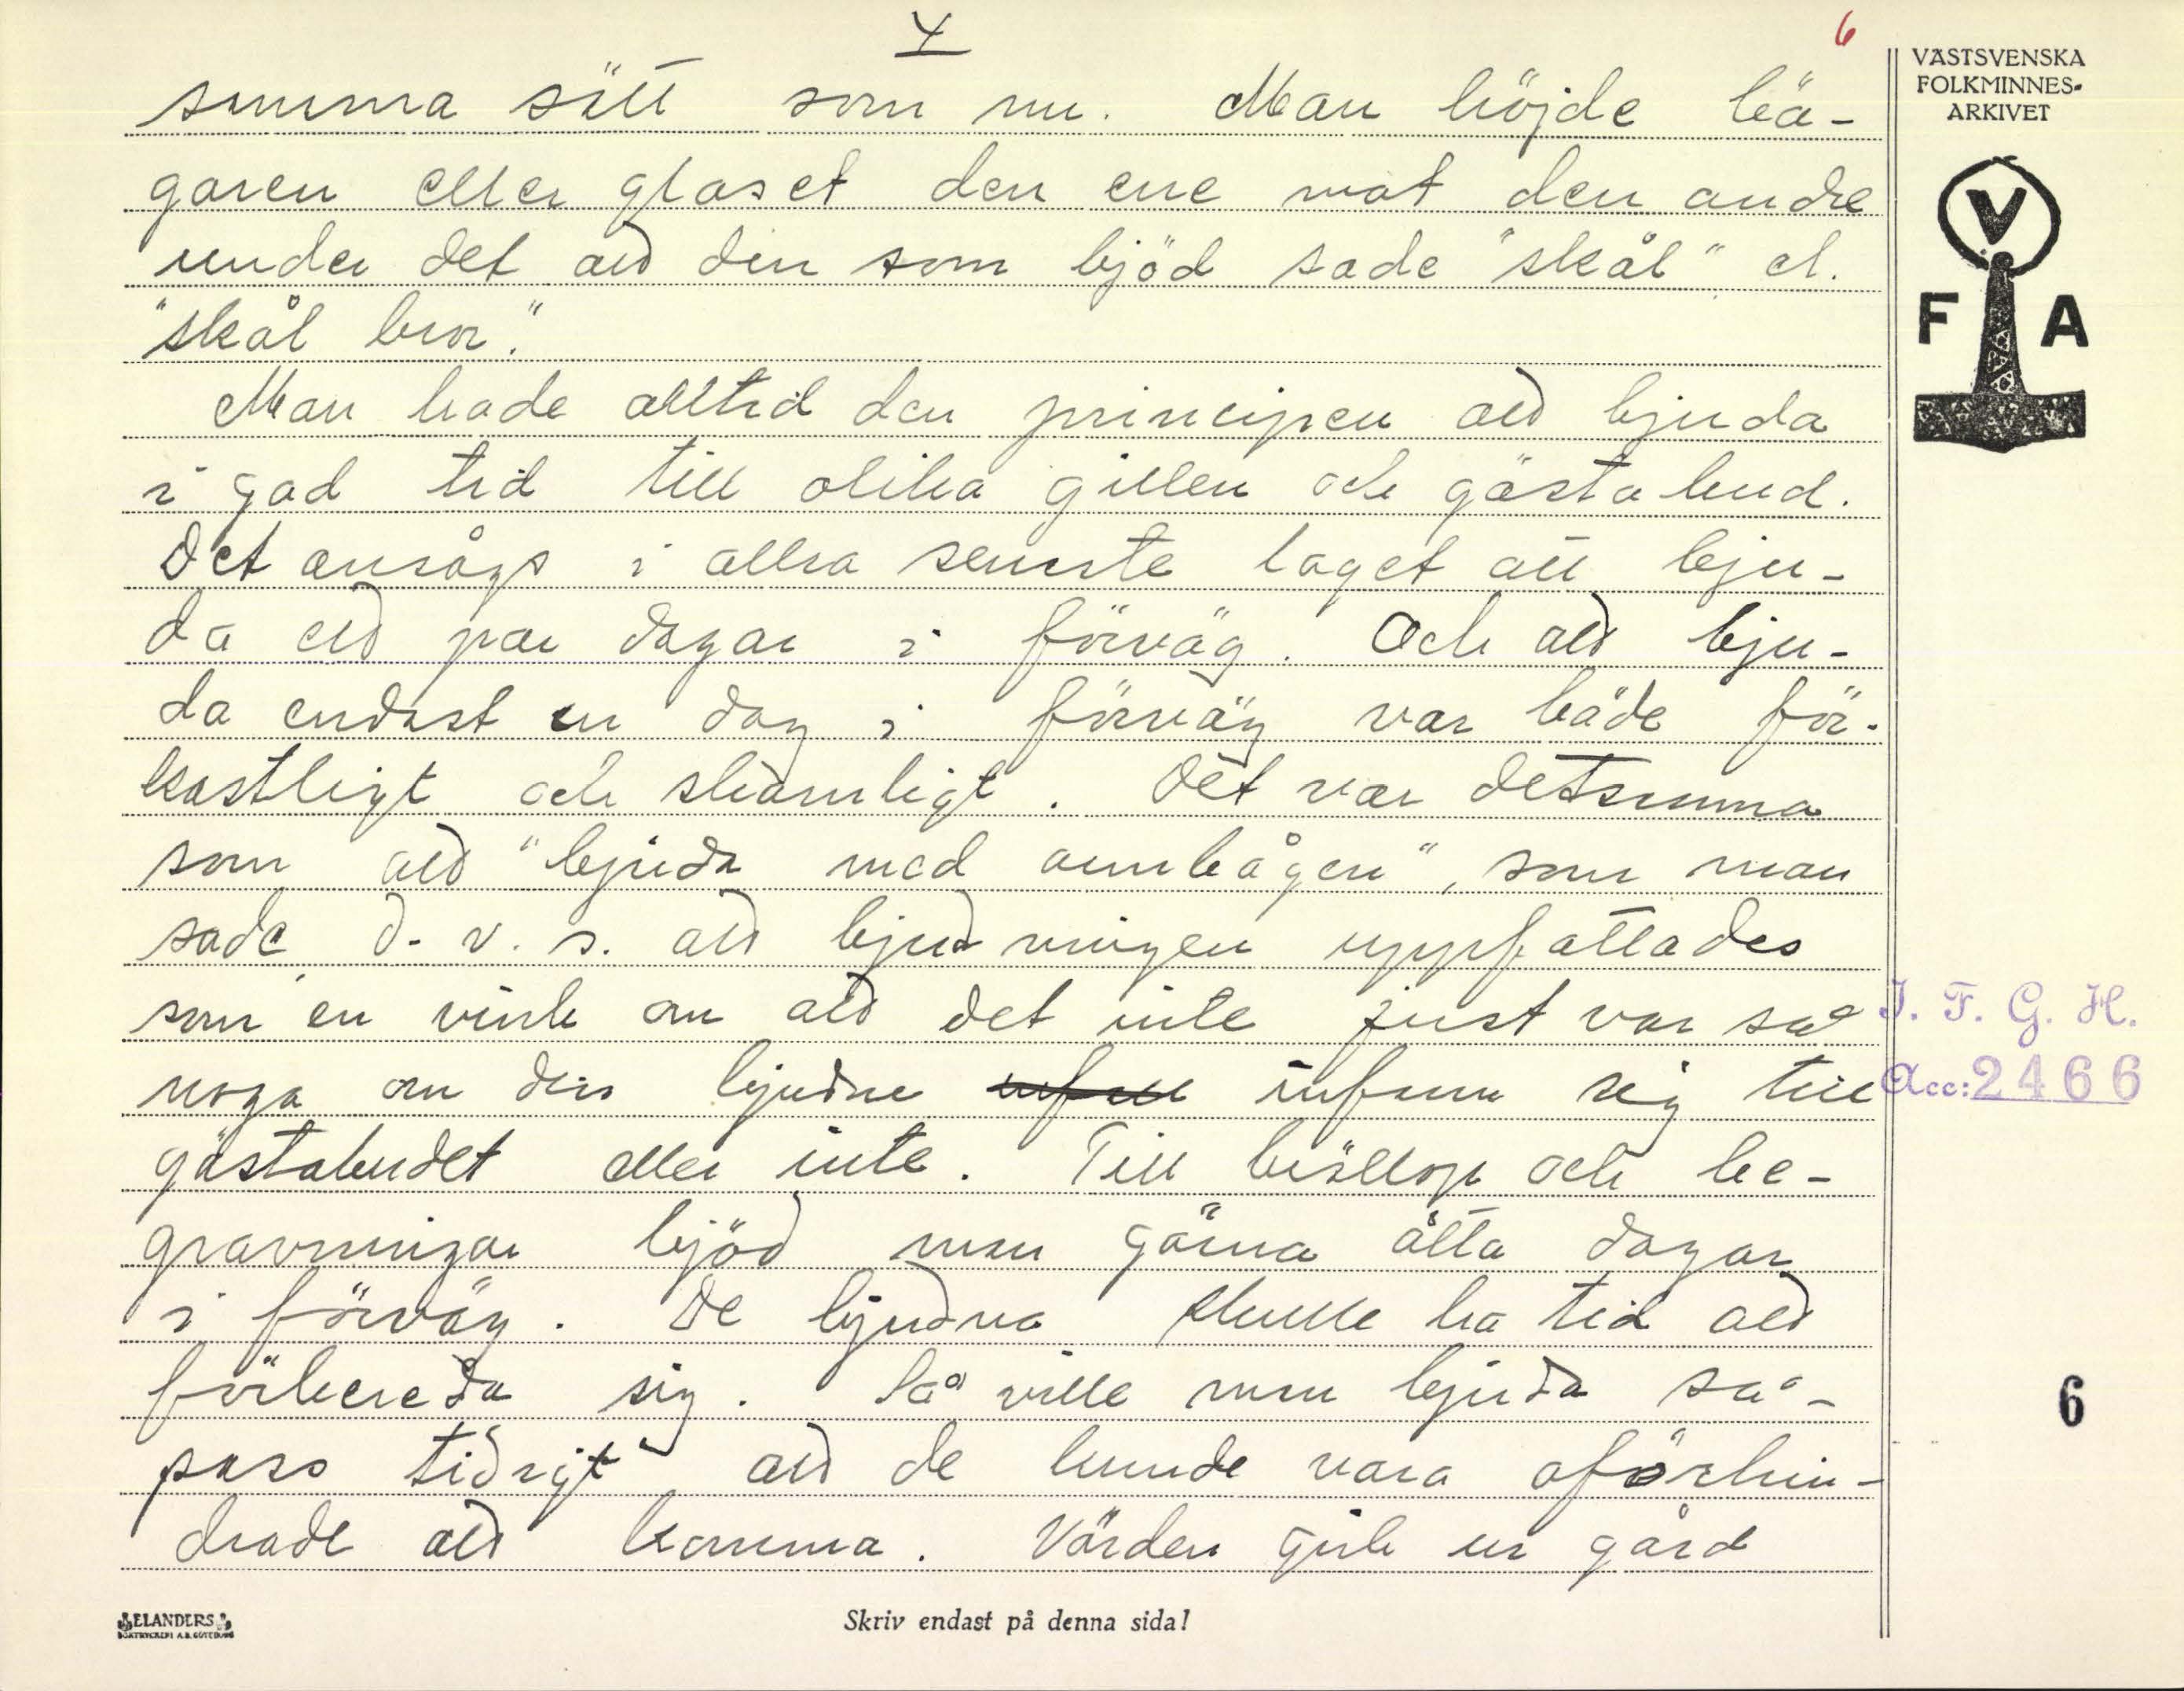 4
6
VÄSTSVENSKA
FOLKMINNES-
ARKIVET
V
F A
samma sätt som nu. Man höjde bä-
garen eller glaset den ene mot den andre
under det att den som bjöd sade "skål" el.
"skål bror."
Man hade alltid den principen att bjuda
i god tid till olika gillen och gästabud.
Det ansågs i allra senaste laget att bju-
da ett par dagar i förväg. Och att bju-
da endast en dag i förväg var både för-
kastligt och skamligt. Det var detsamma
som att "bjuda med armbågen", som man
sade d. v. s. att bjudningen uppfattades
som en vink om att det inte just var så
noga om den bjudne infann sig till
gästabudet eller inte. Till bröllop och be-
gravningar bjöd man gärna åtta dagar
i förväg. De bjudna skulle ha tid att
förbereda sig. Så ville man bjuda så-
pass tidigt att de kunde vara oförhin-
drade att komma. Värden gick ur gård
I. F. G. H.
Acc: 2466
6
ELANDERS
BOKTRYCKERI A.B. GÖTEBORG
Skriv endast på denna sida!